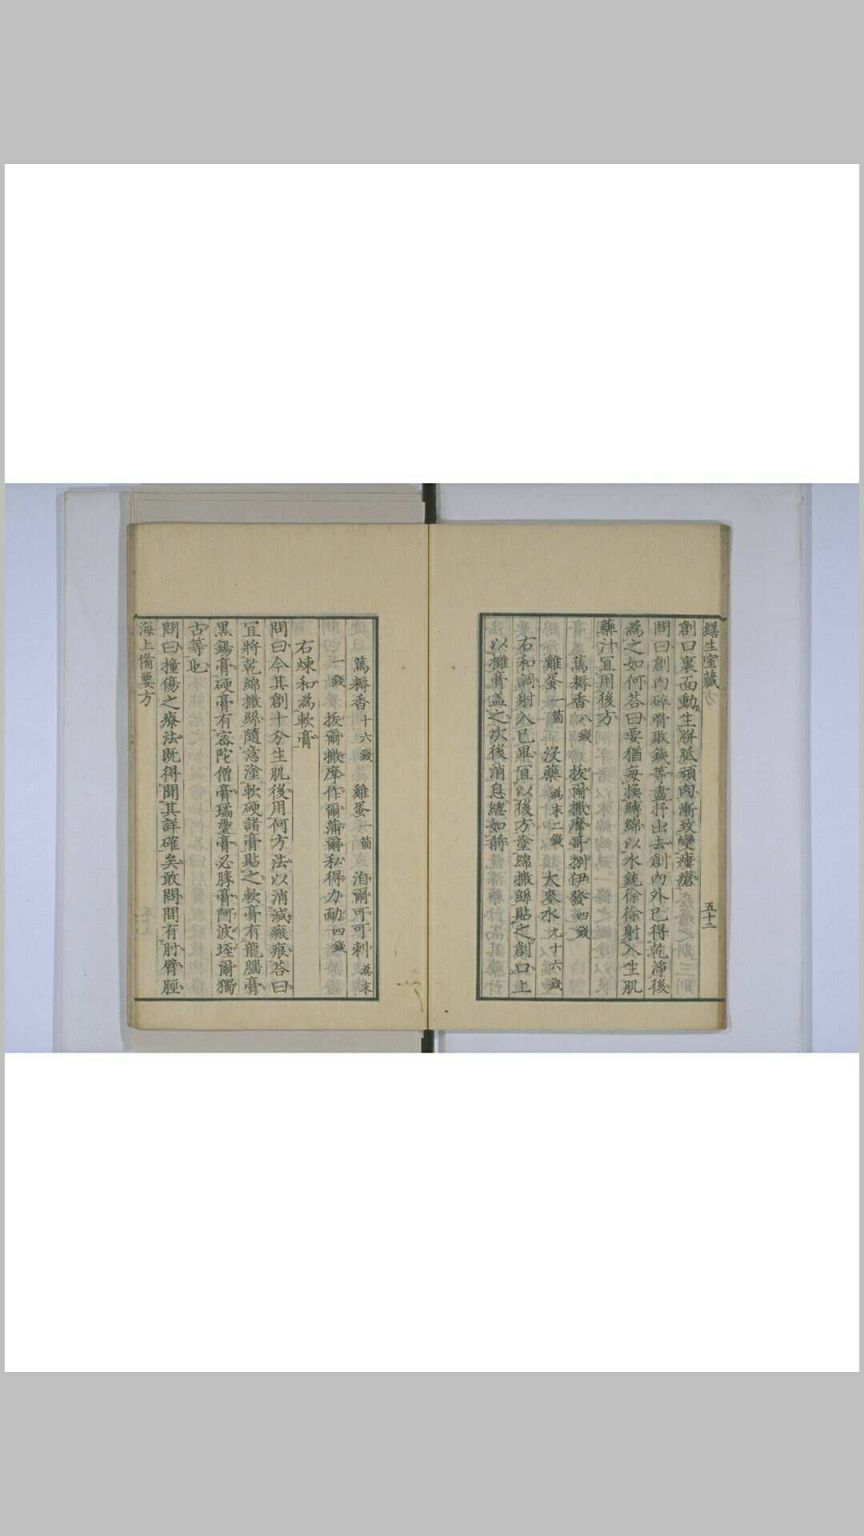 繕生室藏
五十二
創口裏面動生胼胝頑肉漸攻變瘻瘡
問曰創內碎骨敗鍼等盡抒出去創內外已得乾淨後
為之如何荅曰要猶每換縛綿以水銃徐徐射入生肌
藥汁宜用後方
萬耨香 八錢 拔爾撒摩哥捌伊發 四錢
雞蛋 一箇 沒藥 為末二錢 大麥水 九十六錢
右和調射入已畢宜以後方塗綿撒絲貼之創口上
以攤膏盖之次後消息總如前
萬耨香 十六錢 雞蛋 一箇 泊爾可可刺 為末
一錢 拔爾撒摩作爾蒲爾私得力動 四錢
右煉和為軟膏
問曰今其創十分生肌後用何方法以消滅瘢痕荅曰
宜將乾綿撒絲隨意塗軟硬諸膏貼之軟膏有龍腦膏
黑錫膏硬膏有密陀僧膏璊璽膏必膵膏阿波垤爾獨
古等也
問曰撞傷之療法既得聞其詳確矣敢問間有肘臂脛
海上備要方